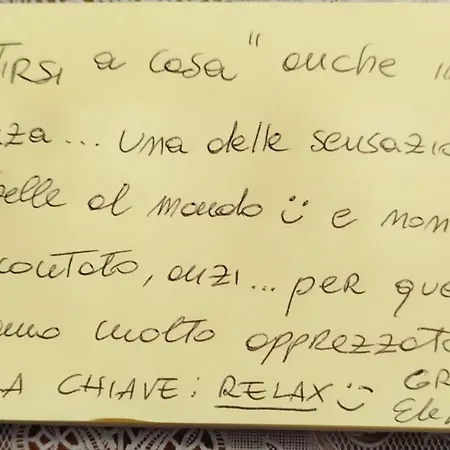 TIRSI a casa" anche i
za... una delle sensazio
belle al mondo :) e non
contato, anzi... per que
amo molto apprezzato
A CHIAVE: RELAX :) GR
Ele